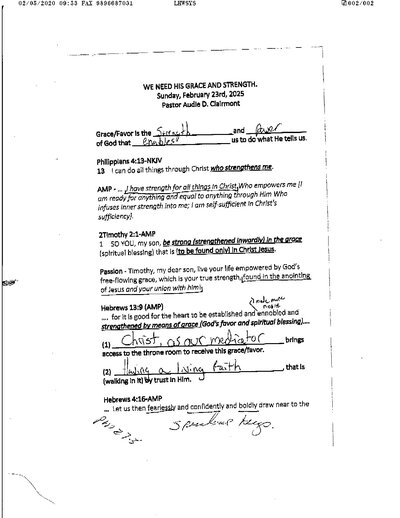 02/05/2020 09:53 FAX 9896687031 LHWSYS 002/002
WE NEED HIS GRACE AND STRENGTH.
Sunday, February 23rd, 2025
Pastor Audie D. Clairmont
Grace/Favor is the Strength and favor
of God that enables us to do what He tells us.
Philippians 4:13-NKJV
13 I can do all things through Christ who strengthens me.
AMP - ... I have strength for all things in Christ Who empowers me [I
am ready for anything and equal to anything through Him Who
infuses inner strength into me; I am self-sufficient in Christ's
sufficiency].
2Timothy 2:1-AMP
1 SO YOU, my son, be strong (strengthened inwardly) in the grace
(spiritual blessing) that is (to be found only) in Christ Jesus.
Passion - Timothy, my dear son, live your life empowered by God's
free-flowing grace, which is your true strength, found in the anointing
of Jesus and your union with him!
made more
Hebrews 13:9 (AMP)
.... for it is good for the heart to be established and ennobled and
strengthened by means of grace (God's favor and spiritual blessing)....
(1) Christ, as our mediator brings
access to the throne room to receive this grace/favor.
(2) Having a living faith, that is
(walking in it) by trust in Him.
Hebrews 4:16-AMP
... Let us then fearlessly and confidently and boldly draw near to the